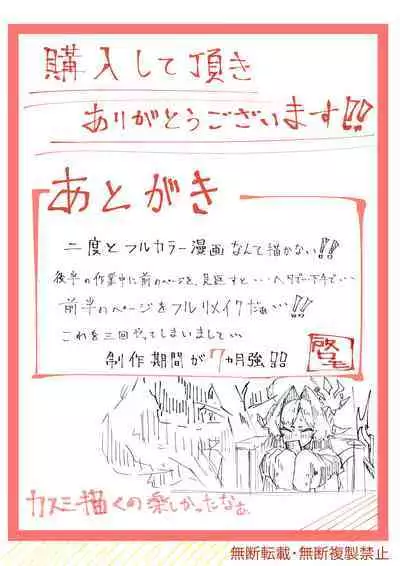 購入して頂き
ありがとうございます!!
あとがき
二度とフルカラー漫画なんて描かない!!
後半の作業中に前のページを見返すと・・・ヘタで下手で・・・
前半のページをフルリメイクだぁ…!!
これを三回やってしまいまして…
制作期間が7ヵ月強!!
カスミ描くの楽しかったなぁ。
無断転載・無断複製禁止